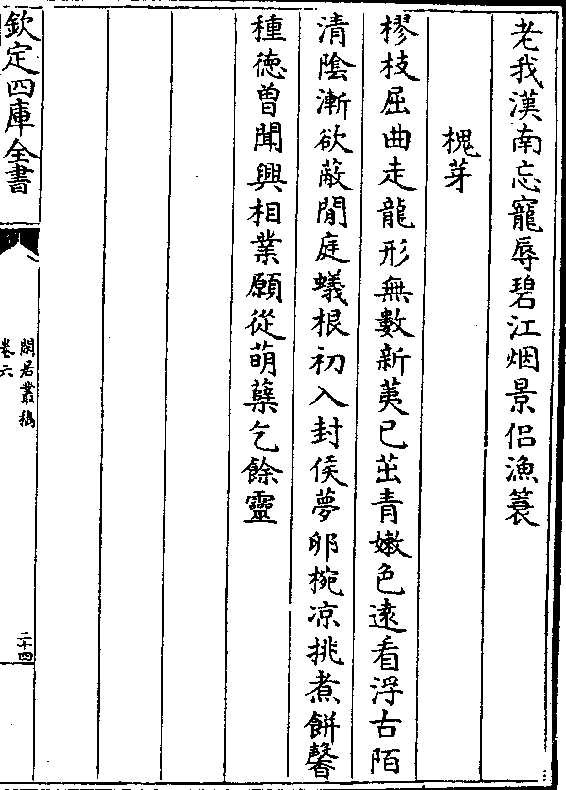 老我漢南忘寵辱碧江烟景侣漁簑
槐芽
樛枝屈曲走龍形無數新荑已茁青嫩色遠看浮古陌
清陰漸欲蔽閒庭蟻根初入封侯夢卵椀凉挑煮餅馨
種徳曽聞興相業願從萌蘖乞餘靈
欽定四庫全書
閒居叢稿
卷六
二十四